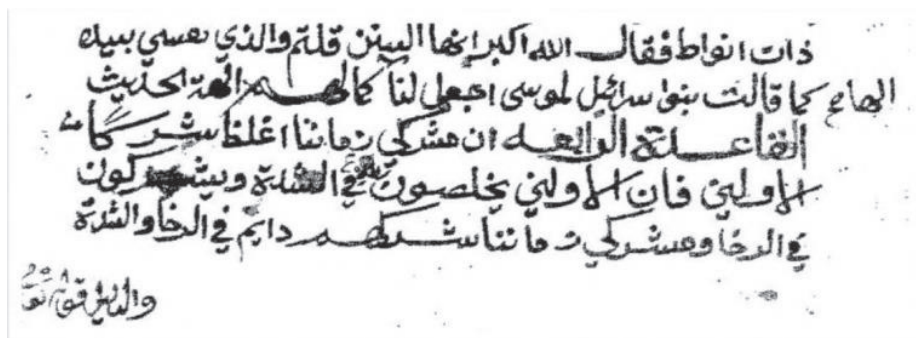 ذات انواط فقال الله اكبر انها السنن قلتم والذي نفسي بيده
كما قالت بنوا اسرائيل لموسى اجعل لنا كما لهم الهة الحديث
القاعدة الرابعة ان مشركي زماننا اغلظ شركا من
الاولين فان الاولين يخلصون في الشدة ويشركون
في الرخا ومشركي زماننا شركهم دايم في الرخا والشدة
والدليل قوله تعا